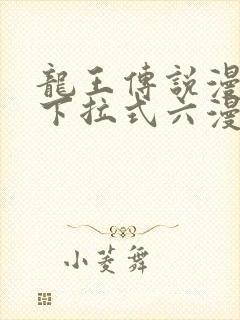 龍王傳説漫
下拉式六漫
小菱舞